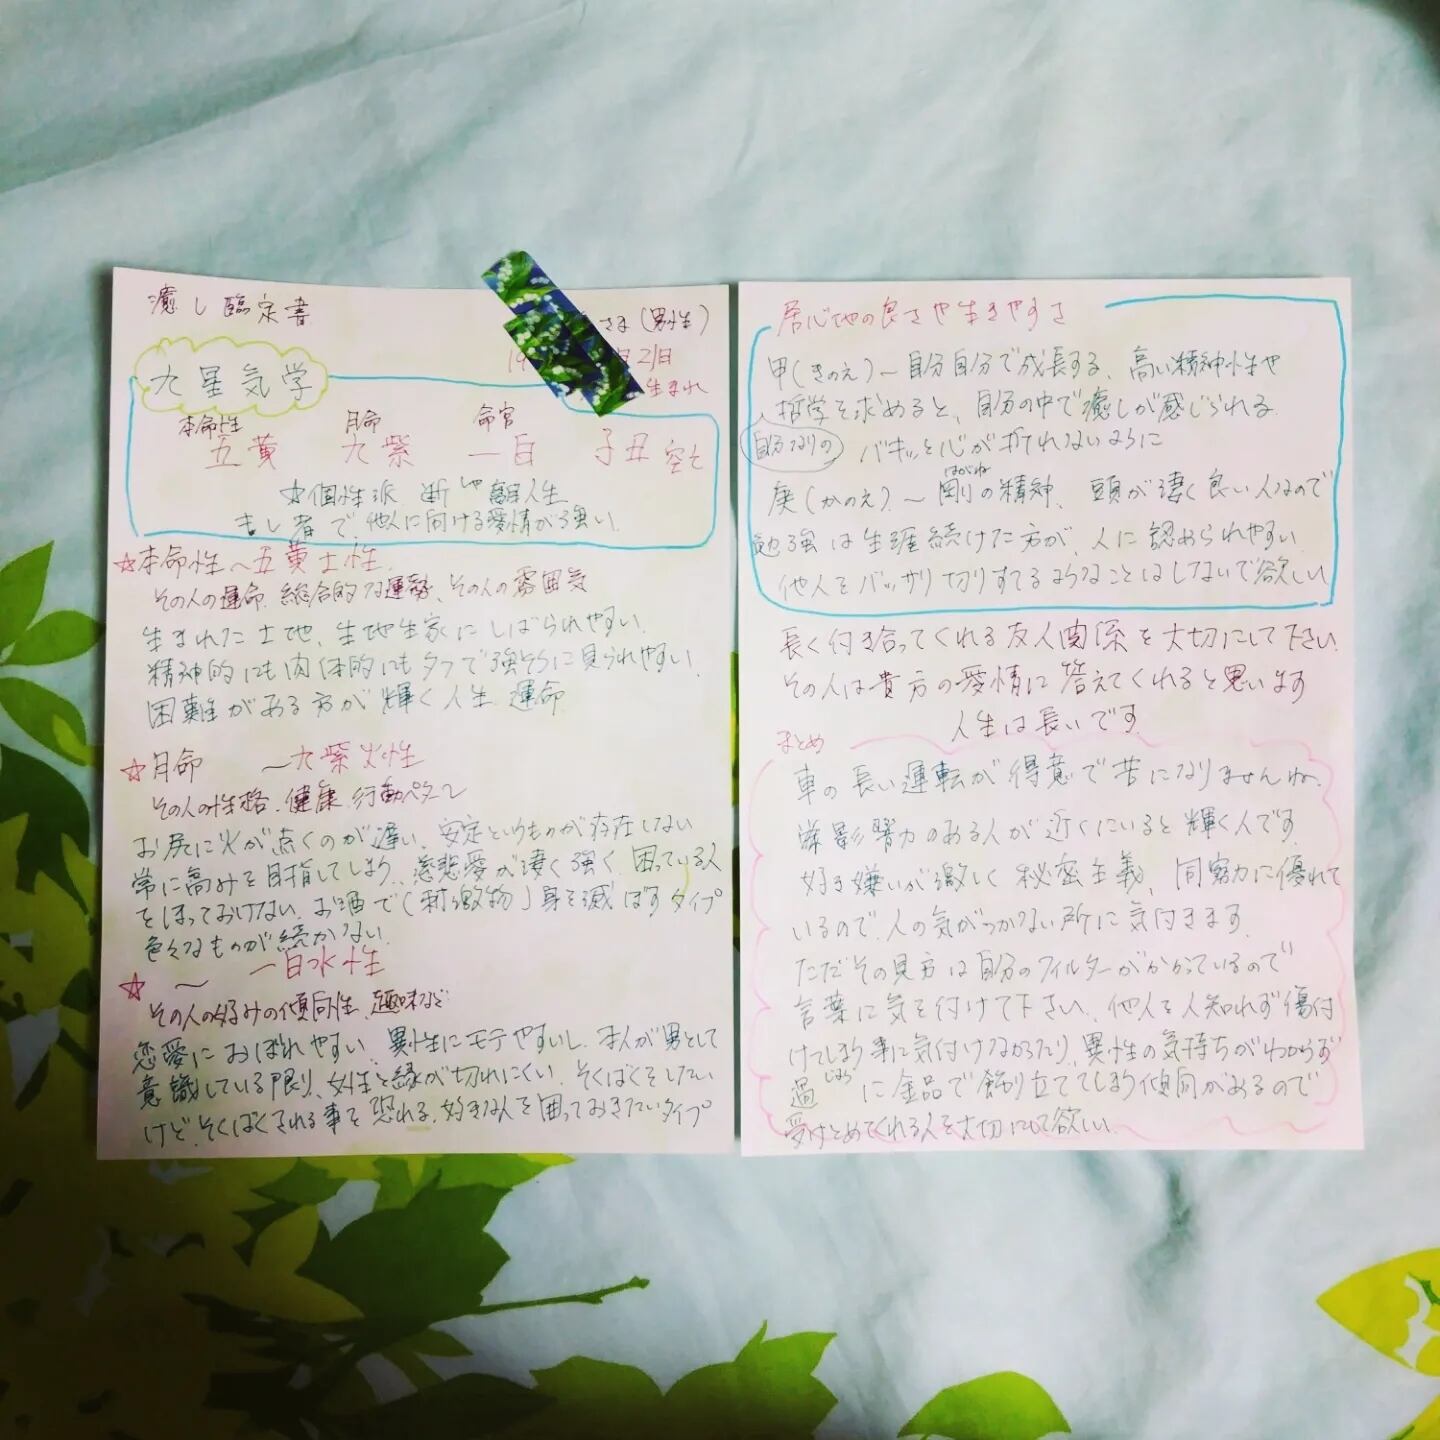 癒し臨定書
さま(男性)
19
月21日
生まれ
九星気学
本命性 月命 命宮
五黄 九紫 一白 子丑空亡
☆個性派 断しゃ離人生
する者で、他人に向ける愛情が強い。
☆本命性～五黄土性
その人の運命、総合的な運勢、その人の雰囲気
生まれた土地、生地生家にしばられやすい。
精神的にも肉体的にもタフで強そうに見られやすい。
困難がある方が輝く人生、運命
☆月命 ～九紫火性
その人の性格、健康、行動パターン
お尻に火が点くのが遅い、安定というものが存在しない
常に高みを目指してしまう、慈悲愛が凄く強く、困っている人
をほっておけない、お酒で(刺激物)身を滅ぼすタイプ
色々なものが続かない。
☆ ～ 一白水性
その人の好みの傾向性、趣味など
恋愛におぼれやすい、異性にモテやすいし、本人が男として
意識している限り、女性と縁が切れにくい、そくばくをしたい
けど、そくばくされる事を恐れる、好きな人を囲っておきたいタイプ
居心地の良さや生きやすさ
甲(きのえ)～自分自分で成長する、高い精神性や
哲学を求めると、自分の中で癒しが感じられる
自分なりの バキッと心が折れないように
庚(かのえ)～剛の精神、頭が凄く良い人なので
はがね
勉強は生涯続けた方が、人に認められやすい
他人をバッサリ切りすてるようなことはしないで欲しい
長く付き合ってくれる友人関係を大切にして下さい。
その人は貴方の愛情に答えてくれると思います
人生は長いです。
まとめ
車の長い運転が得意で苦になりませんね。
影響力のある人が近くにいると輝く人です。
好き嫌いが激しく秘密主義、洞察力に優れて
いるので、人の気がつかない所に気付きます。
ただその見方は自分のフィルターがかかっているので
言葉に気を付けて下さい、他人を人知れず傷付
けてしまう事に気付けなかったり、異性の気持ちがわからず
過じょうに金品で飾り立ててしまう傾向があるので
受けとめてくれる人を大切にして欲しい。